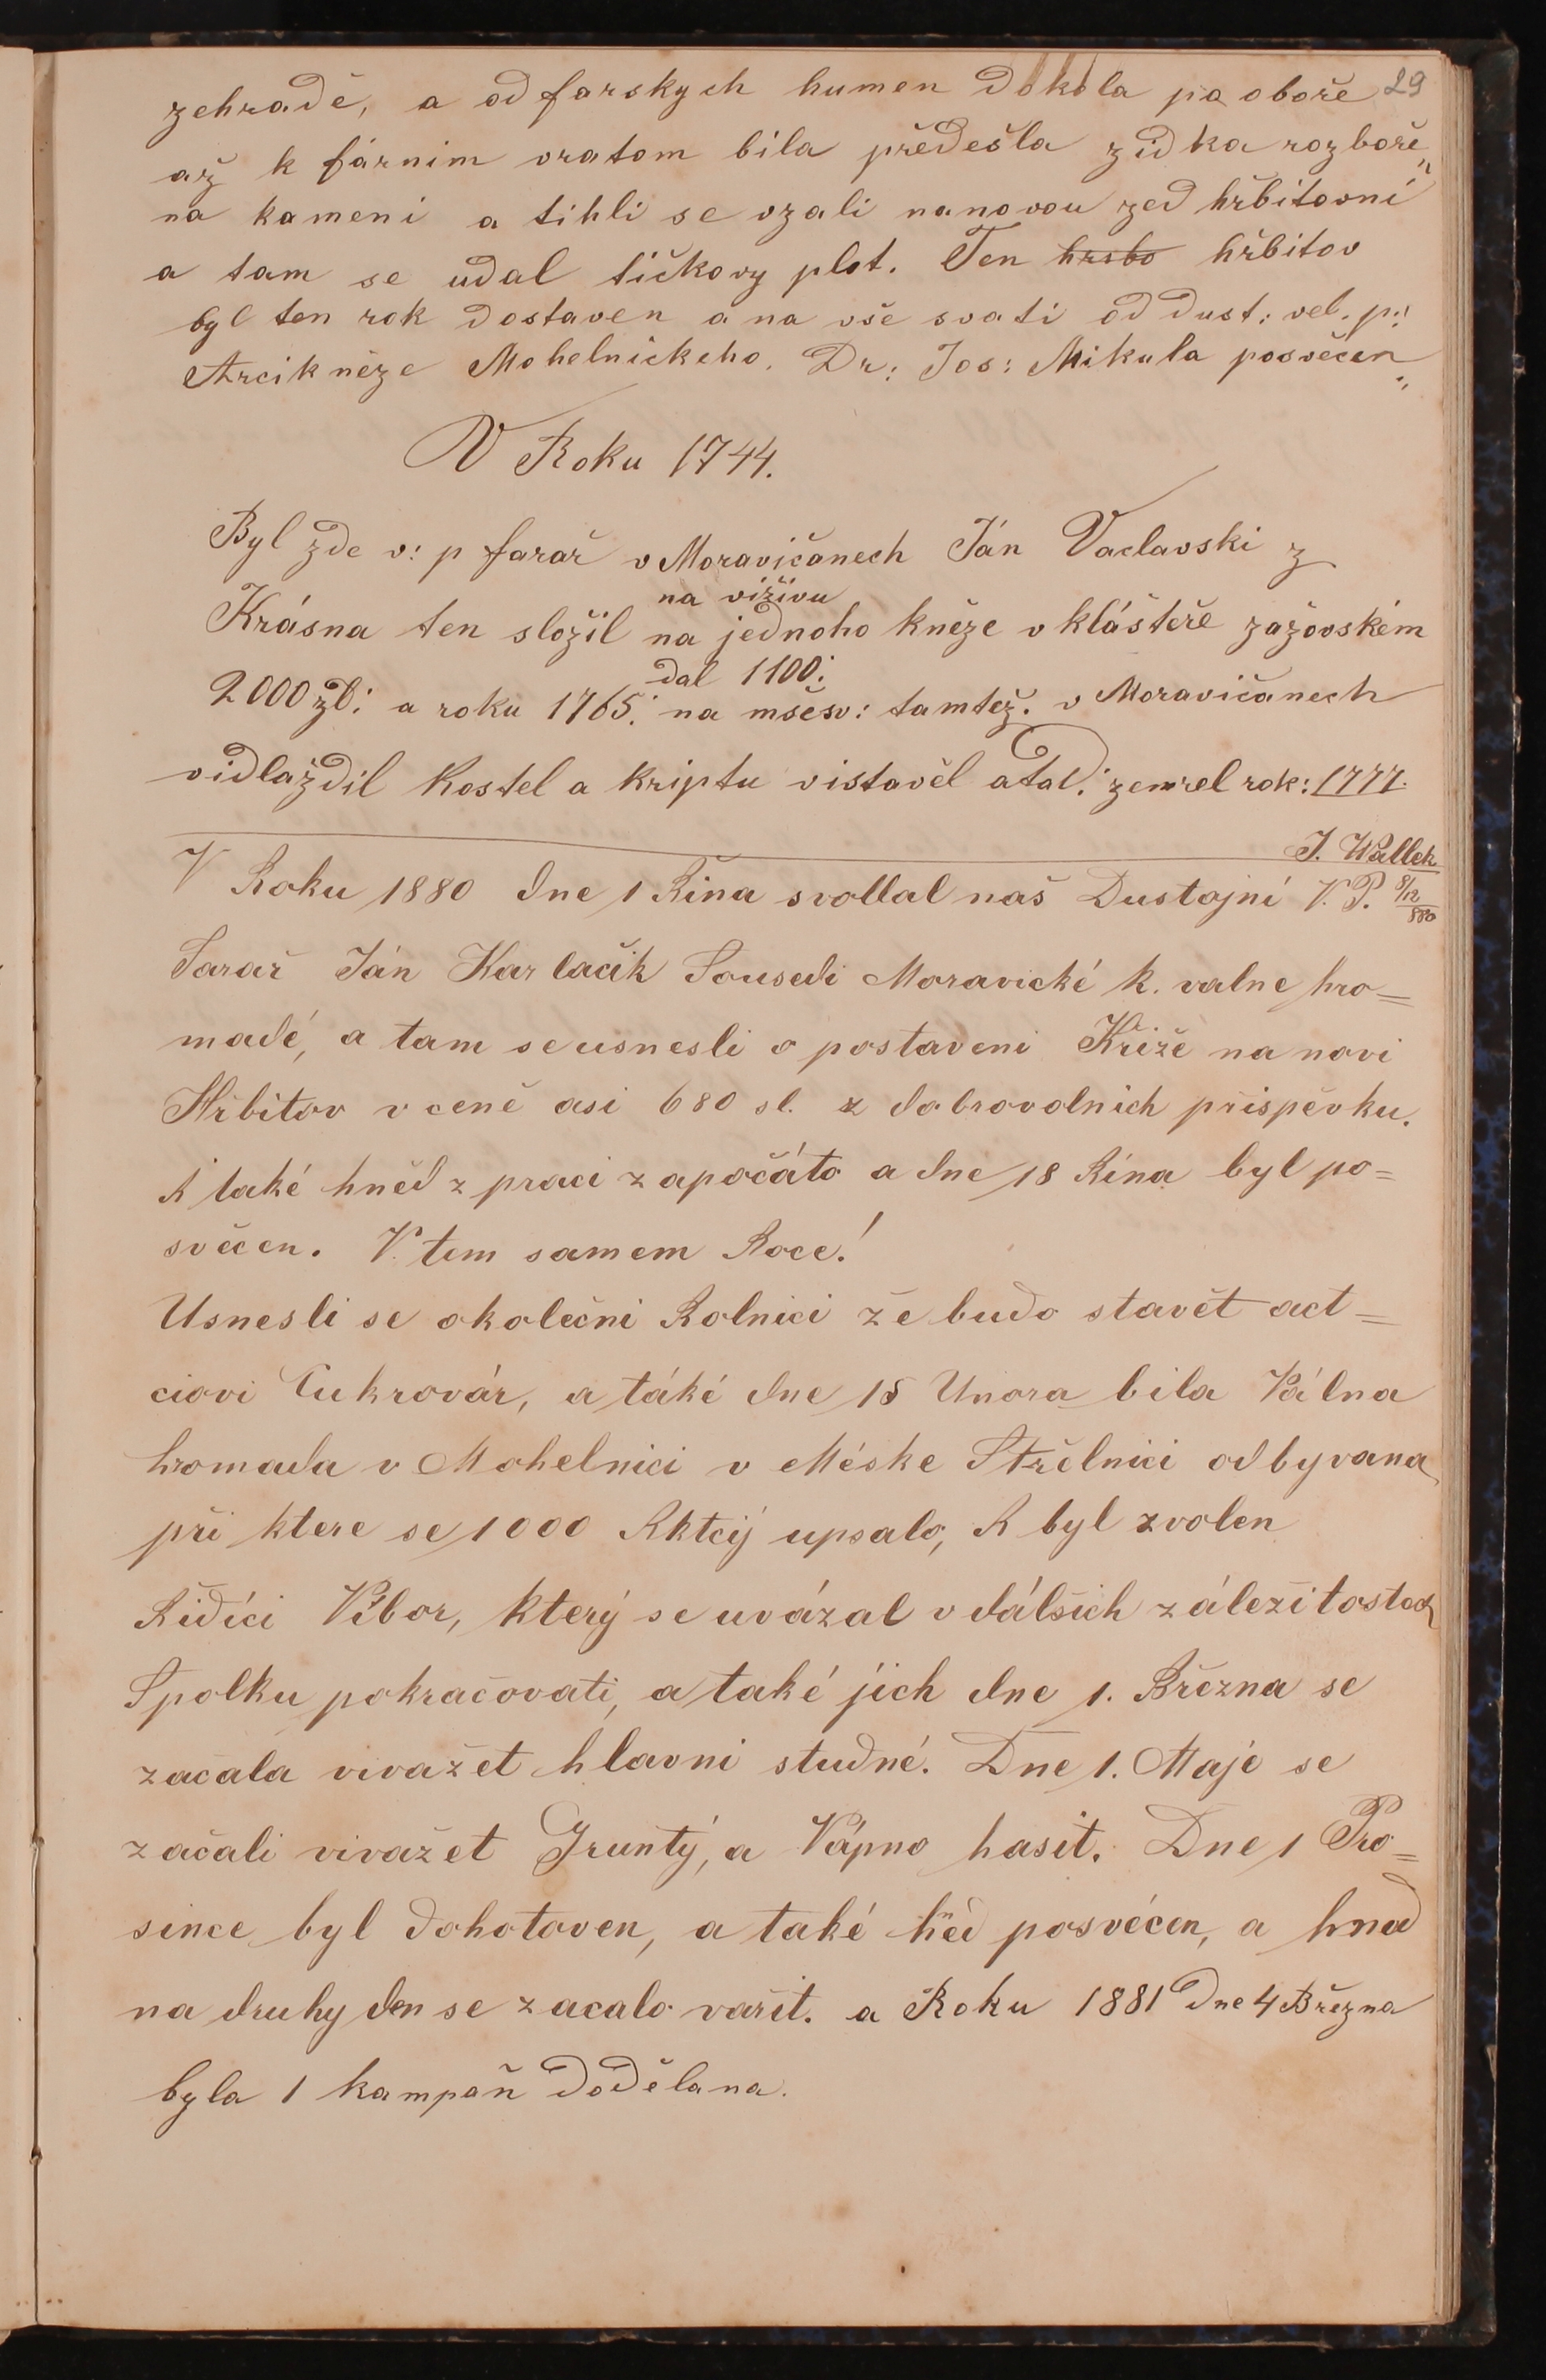 zehradě, a od farskych humen dokola pa oboře 29
až k fárnim vratom bila předešla zidka rozboře„
na kameni a tihli se vzali nanovou zed hřbitovni
a tam se udal tičkovy plot. Ten hrsbo hřbitov
byl ten rok dostaven a na vše svati od dust: vel. p:
Arcikněze Mohelnickeho. Dr: Jos: Mikula posvěcen„
V Roku 1744.
Byl zde v: p farař v Moravičanech Ján Vaclavski z
na viživu
Krásna ten složil na jednoho kněze v klášteře zažovském
dal 1100:
2000 zl: a roku 1765: na mšesv: tamtéž. v Moravičanech
vidlaždil Kostel a kriptu vistavěl atad: zemrel rok: 1777.
J. Wallek
V Roku 1880 dne 1 Řina svollal naš Dustojni V. P. 8/12 880
Farař Ján Karlačik Sousedi Moravické k. valne hro=
madé, a tam se usnesli o postaveni Křiže na novi
Hřbitov v ceně asi 680 zl. z dobrovolnich přispěvku.
A také hněd z praci započáto a dne 18 Řina byl po=
svěcen. V. tem samem Roce!
Usnesli se okolečni Rolnici že budo stavět act=
ciovi Cukrovár, a táké dne 15 Unora bila Válna
hromada v Mohelnici v Méske Střelnici odbyvana
při ktere se 1000 Aktcij upsalo, A byl zvolen
Řidíci Vibor, který se uvázal v dálšich záležitostech
Spolku pokračovati, a také jich dne 1. Března se
začala vivažet hlavni studné. Dne 1. Maje se
začali vivažet Grunty, a Vápno hasit. Dne 1 Pro=
since byl dohotoven, a také hněd posvécen, a hned
na druhy den se zacalo vařit. a Roku 1881 dne 4 Března
byla 1 kampañ dodělana.